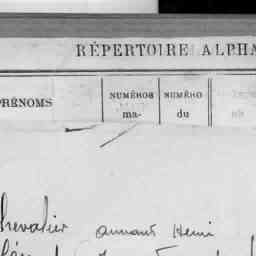 RÉPERTOIRE ALPHA
PRÉNOMS
NUMÉROS
ma-
NUMÉRO
du
Chevalier Armand Henri